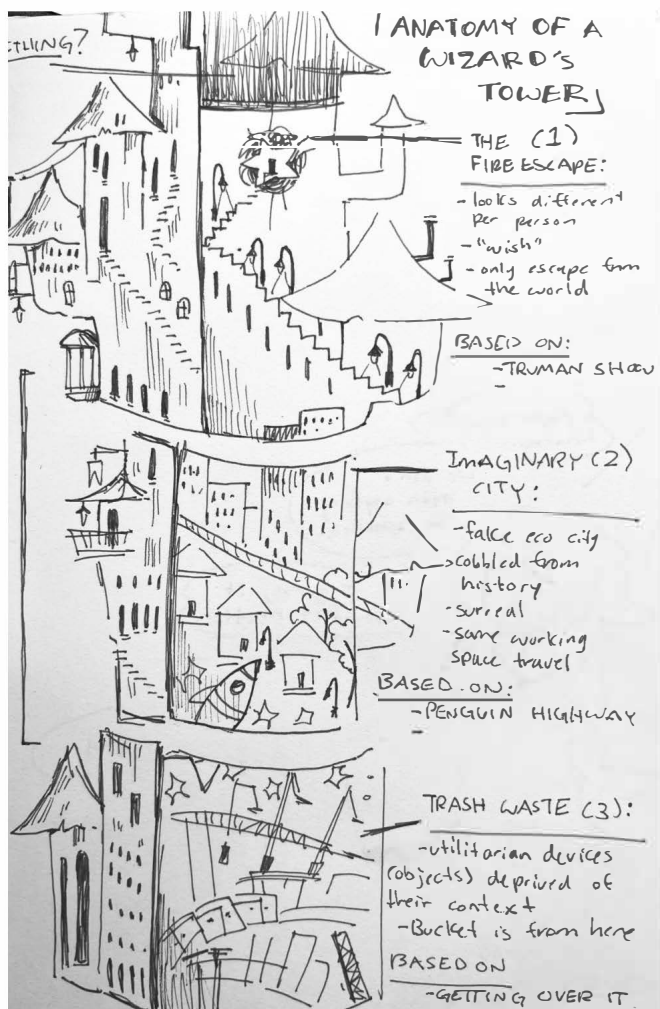 ETHING?
ANATOMY OF A
WIZARD'S
TOWER
THE (1)
FIRE ESCAPE:
- looks different
per person
- "wish"
- only escape from
the world
BASED ON:
- TRUMAN SHOW
-
IMAGINARY (2)
CITY:
- fake eco city
> cobbled from
history
- surreal
- some working
space travel
BASED ON:
- PENGUIN HIGHWAY
-
TRASH WASTE (3):
- utilitarian devices
(objects) deprived of
their context
- Bucket is from here
BASED ON
- GETTING OVER IT